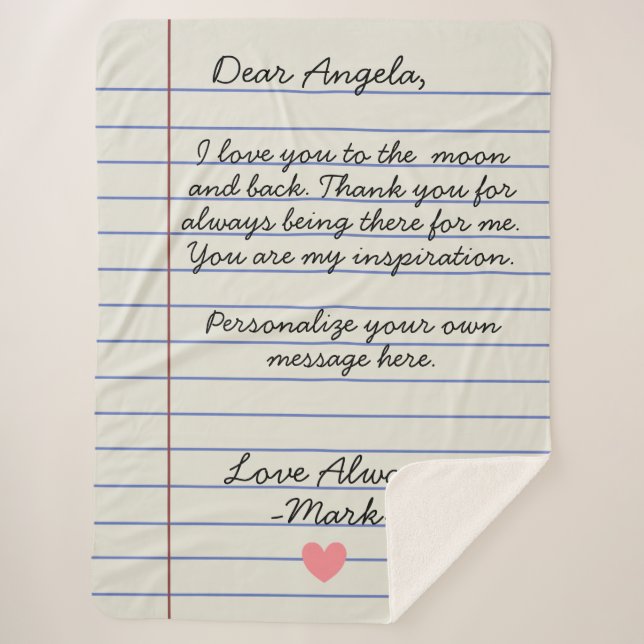 Dear Angela,
I love you to the moon
and back. Thank you for
always being there for me.
You are my inspiration.
Personalize your own
message here.
Love
-Mark